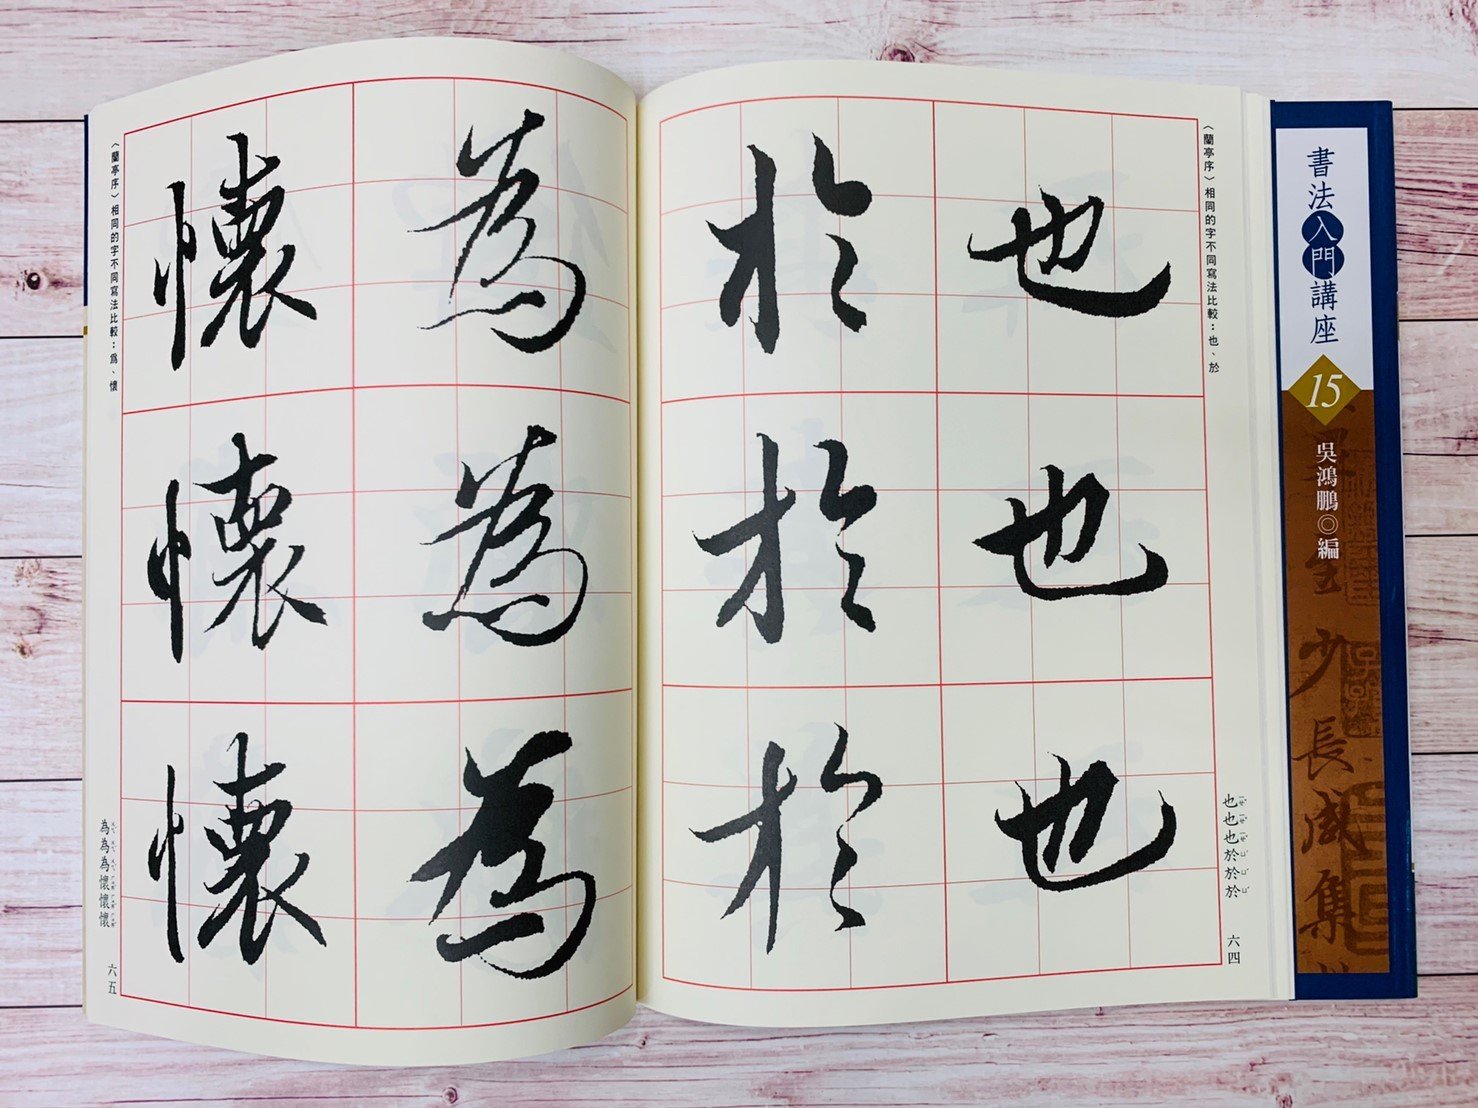 書法入門講座
15
吳鴻鵬◎編
少長咸集
〈蘭亭序〉相同的字不同寫法比較：也、於
也
也
也
於
於
於
也也也於於於
六四
為
為
為
懷
懷
懷
〈蘭亭序〉相同的字不同寫法比較：為、懷
為為為懷懷懷
六五